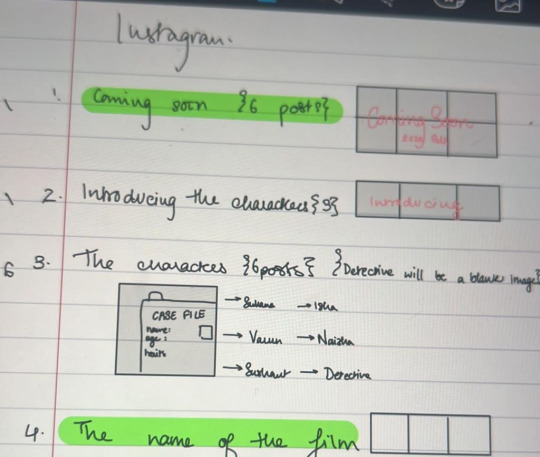 Instagram.
1. Coming soon {6 posts}
Coming Soon
2. Introducing the characters {3}
Introducing
6 3. The characters {6 posts} {Detective will be a blank image}
CASE FILE
name:
age:
→ Isha
→ Varun → Naisha
→ Sushant → Detective
4. The name of the film